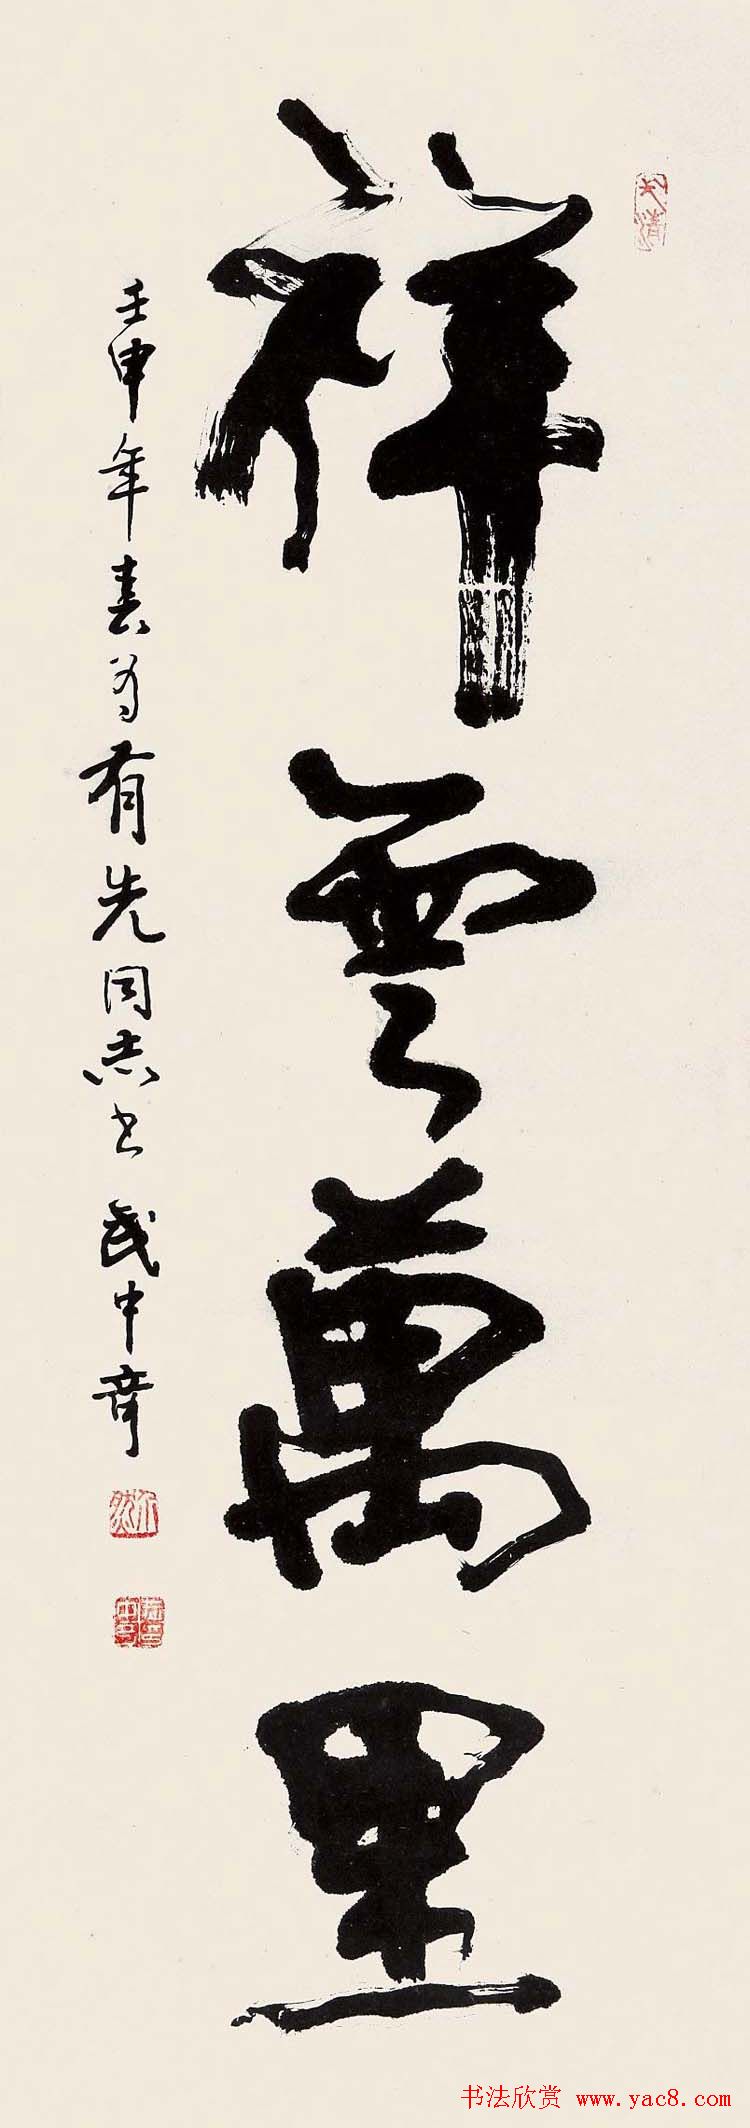 祥雲萬里
壬申年春为有先同志书 武中奇
书法欣赏 www.yac8.com